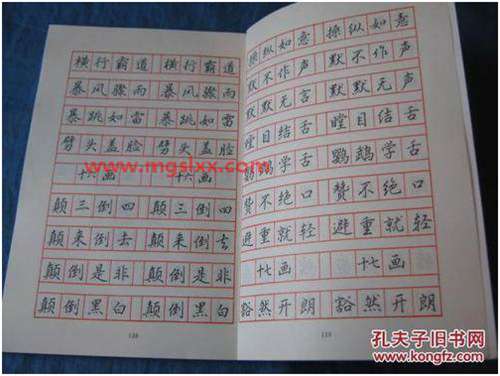 横行霸道 横行霸道
暴风骤雨 暴风骤雨
暴跳如雷 暴跳如雷
劈头盖脸 劈头盖脸
十六画 十六画
颠三倒四 颠三倒四
颠来倒去 颠来倒去
颠倒是非 颠倒是非
颠倒黑白 颠倒黑白
操纵如意 操纵如意
默不作声 默不作声
默默无言 默默无声
瞠目结舌 瞠目结舌
鹦鹉学舌 鹦鹉学舌
赞不绝口 赞不绝口
避重就轻 避重就轻
十七画 十七画
豁然开朗 豁然开朗
www.mgslxx.com
孔夫子旧书网
www.kongfz.com